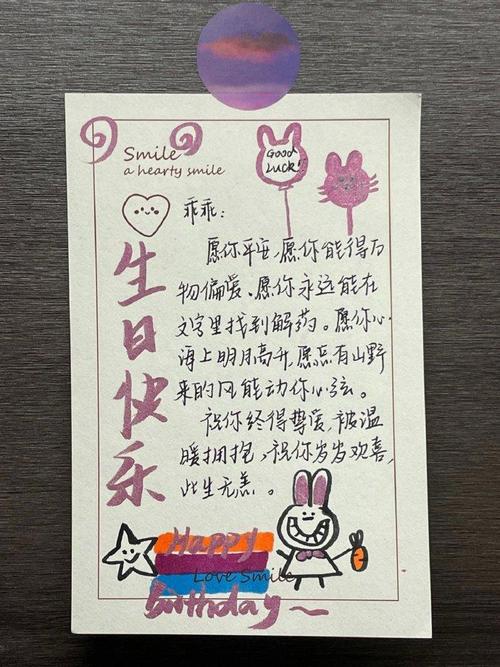 Smile
a hearty smile
Good
Luck!!
乖乖：
生日快乐
愿你平安，愿你能得万
物偏爱、愿你永远能在
文字里找到解药。愿你心
海上明月高升，愿总有山野
来的风能动你心弦。
祝你终得挚爱，被温
暖拥抱，祝你岁岁欢喜，
此生无恙。
Happy
Love Smile
Birthday~